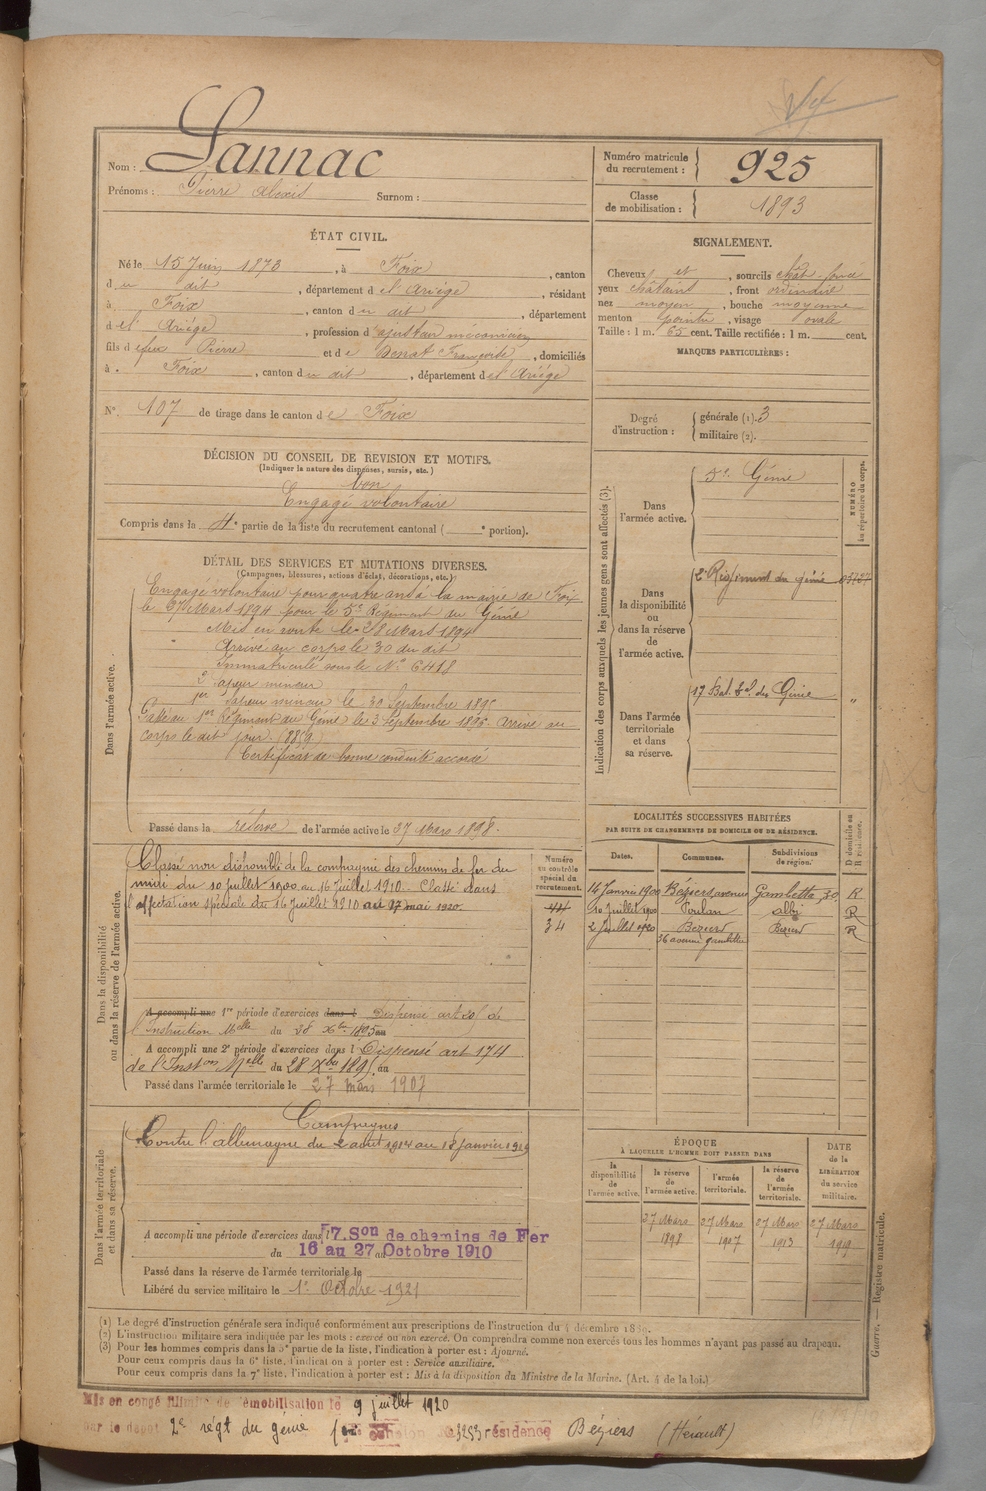 Nom : Lannac
Prénoms : Pierre Alexis Surnom :
Numéro matricule du recrutement : 925
Classe de mobilisation : 1893
ÉTAT CIVIL.
Né le 15 Juin 1873, à Foix, canton
du dit, département de l'Ariège, résidant
à Foix, canton du dit, département
de l'Ariège, profession d'ajusteur mécanicien
fils de feu Pierre et de Françoise, domiciliés
à Foix, canton du dit, département de l'Ariège
N° 107 de tirage dans le canton de Foix
SIGNALEMENT.
Cheveux et, sourcils chât-foncé
yeux châtains, front ordinaire
nez moyen, bouche moyenne
menton pointu, visage ovale
Taille : 1 m. 65 cent. Taille rectifiée : 1 m. cent.
MARQUES PARTICULIÈRES :
Degré d'instruction : générale (1). 3
militaire (2).
DÉCISION DU CONSEIL DE REVISION ET MOTIFS.
(Indiquer la nature des dispenses, sursis, etc.)
bon
Engagé volontaire
Compris dans la 4e partie de la liste du recrutement cantonal ( e portion).
DÉTAIL DES SERVICES ET MUTATIONS DIVERSES.
(Campagnes, blessures, actions d'éclat, décorations, etc.)
Dans l'armée active.
Engagé volontaire pour quatre ans à la mairie de Foix
le 27 Mars 1894 pour le 5e Régiment du Génie
Mis en route le 28 Mars 1894
Arrivé au corps le 30 du dit
Immatriculé sous le N° 6418
2e Sapeur mineur
1er Sapeur mineur le 30 Septembre 1895
Passé au 1er Régiment du Génie le 3 Septembre 1895. Arrivé au
corps le dit jour.
Certificat de bonne conduite accordé
Passé dans la réserve de l'armée active le 27 Mars 1898.
Indication des corps auxquels les jeunes gens sont affectés (3).
NUMÉRO au répertoire du corps.
Dans l'armée active.
5e Génie
Dans la disponibilité ou dans la réserve de l'armée active.
2e Régiment du génie
Dans l'armée territoriale et dans sa réserve.
17 Bat. du Génie "
Dans la disponibilité ou dans la réserve de l'armée active.
Classé non disponible de la compagnie des chemins de fer du
midi du 10 Juillet 1900 au 16 Juillet 1910. Classé dans
l'affectation spéciale du 16 Juillet 1910 au 17 mai 1920.
Numéro au contrôle spécial du recrutement.
44
34
A accompli une 1re période d'exercices dans l Dispensé art
l'Instruction Melle du 28 Xbre 1895 au
A accompli une 2e période d'exercices dans l Dispensé art 174
de l'Inston Melle du 28 Xbre 1895 au
Passé dans l'armée territoriale le 27 mars 1907
LOCALITÉS SUCCESSIVES HABITÉES
PAR SUITE DE CHANGEMENTS DE DOMICILE OU DE RÉSIDENCE.
Dates. Communes. Subdivisions de région. D domicile ou R résidence.
14 Janvier 1900 Béziers avenue Gambetta, 30. R
10 Juillet 1900 Albi R
2 Juillet 1920 Béziers Béziers R
36 avenue Gambetta
Dans l'armée territoriale et dans sa réserve.
Campagnes
Contre l'allemagne du 2 août 1914 au 18 Janvier 1919
A accompli une période d'exercices dans l 7. Son de chemins de Fer
du 16 au 27 Octobre 1910
Passé dans la réserve de l'armée territoriale le
Libéré du service militaire le 1er Octobre 1921
ÉPOQUE
À LAQUELLE L'HOMME DOIT PASSER DANS
la disponibilité de l'armée active.
la réserve de l'armée active.
l'armée territoriale.
la réserve de l'armée territoriale.
DATE de la LIBÉRATION du service militaire.
27 Mars 1898
27 Mars 1907
27 Mars 1913
27 Mars 1919
Guerre. — Registre matricule.
(1) Le degré d'instruction générale sera indiqué conformément aux prescriptions de l'instruction du 4 décembre
(2) L'instruction militaire sera indiquée par les mots : exercé ou non exercé. On comprendra comme non exercés tous les hommes n'ayant pas passé au drapeau.
(3) Pour les hommes compris dans la 5e partie de la liste, l'indication à porter est : Ajourné.
Pour ceux compris dans la 6e liste, l'indication à porter est : Service auxiliaire.
Pour ceux compris dans la 7e liste, l'indication à porter est : Mis à la disposition du Ministre de la Marine. (Art. 4 de la loi.)
Mis en congé illimité de démobilisation le 9 juillet 1920
par le dépôt 2e régt du génie échelon résidence Béziers (Hérault)